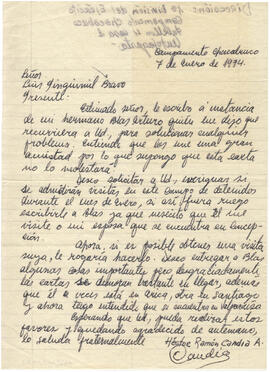 Dirección: 1ª División del Ejército
Campamento Chacabuco
Antofagasta
Campamento Chacabuco
7 de Enero de 1974.
Señor
Luis Bravo
Presente
Estimado señor, le escribo a instancia
de mi hermano Blas Arturo quién me dijo que
recurriera a Ud, para solucionar cualquier
problema. Entiendo que les une una gran
amistad por lo que supongo que esta carta
no lo molestará.
Deseo solicitar a Ud, averiguar si
se admitirán visitas en este campo de detenidos
durante el mes de enero, si así fuera ruego
escribirle a Blas ya que necesito que él me
visite o mi esposa que se encuentra en Concep-
ción.
Ahora, si es posible obtener una visita
suya, le rogaría hacerlo. Deseo entregar a Blas
algunas cosas importantes pero desgraciadamente
las cartas se demoran bastante en llegar, además
que él a veces está en Arica, otra en Santiago
y ahora tengo entendido que se encuentra en Valparaíso
Esperando que Ud, pueda realizar estos
favores y quedando agradecido de antemano,
lo saluda fraternalmente Héctor Ramón Candia A.
Candia